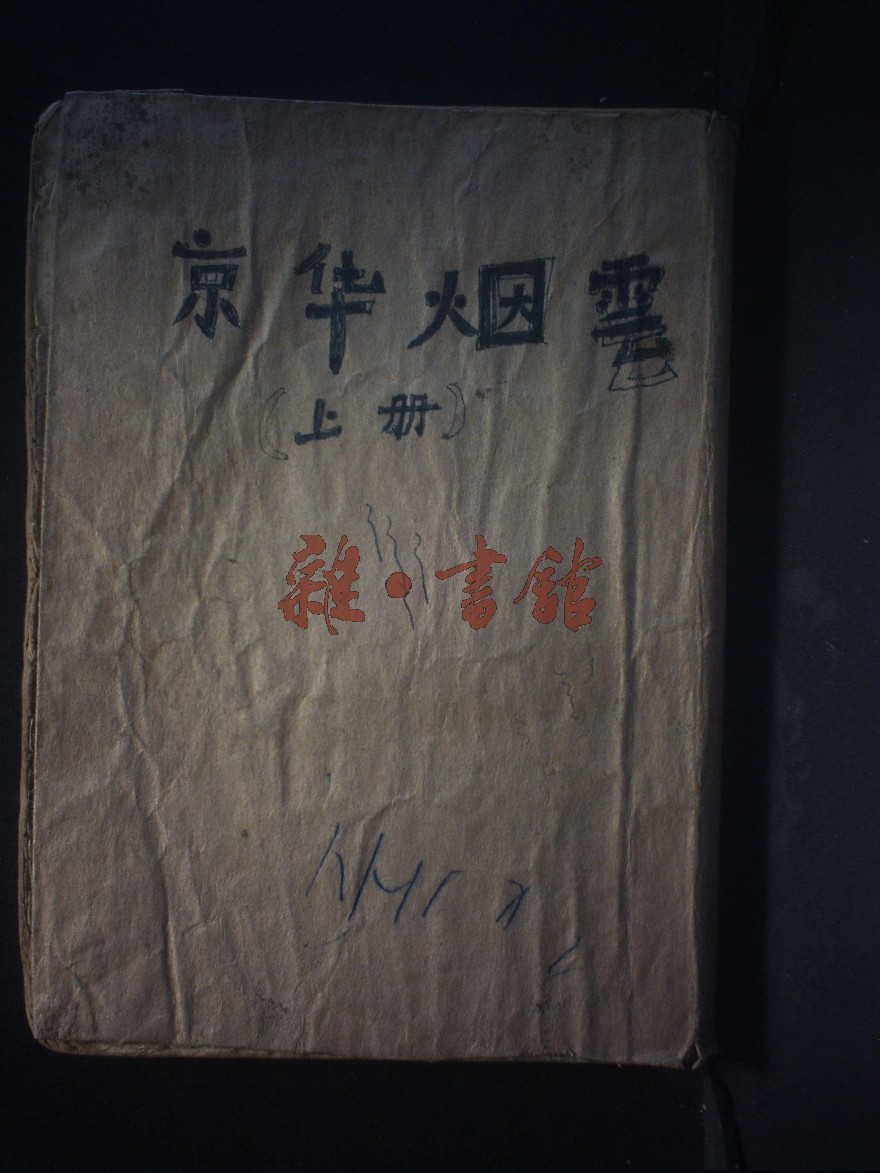 京华烟雲
（上册）
雜·書館